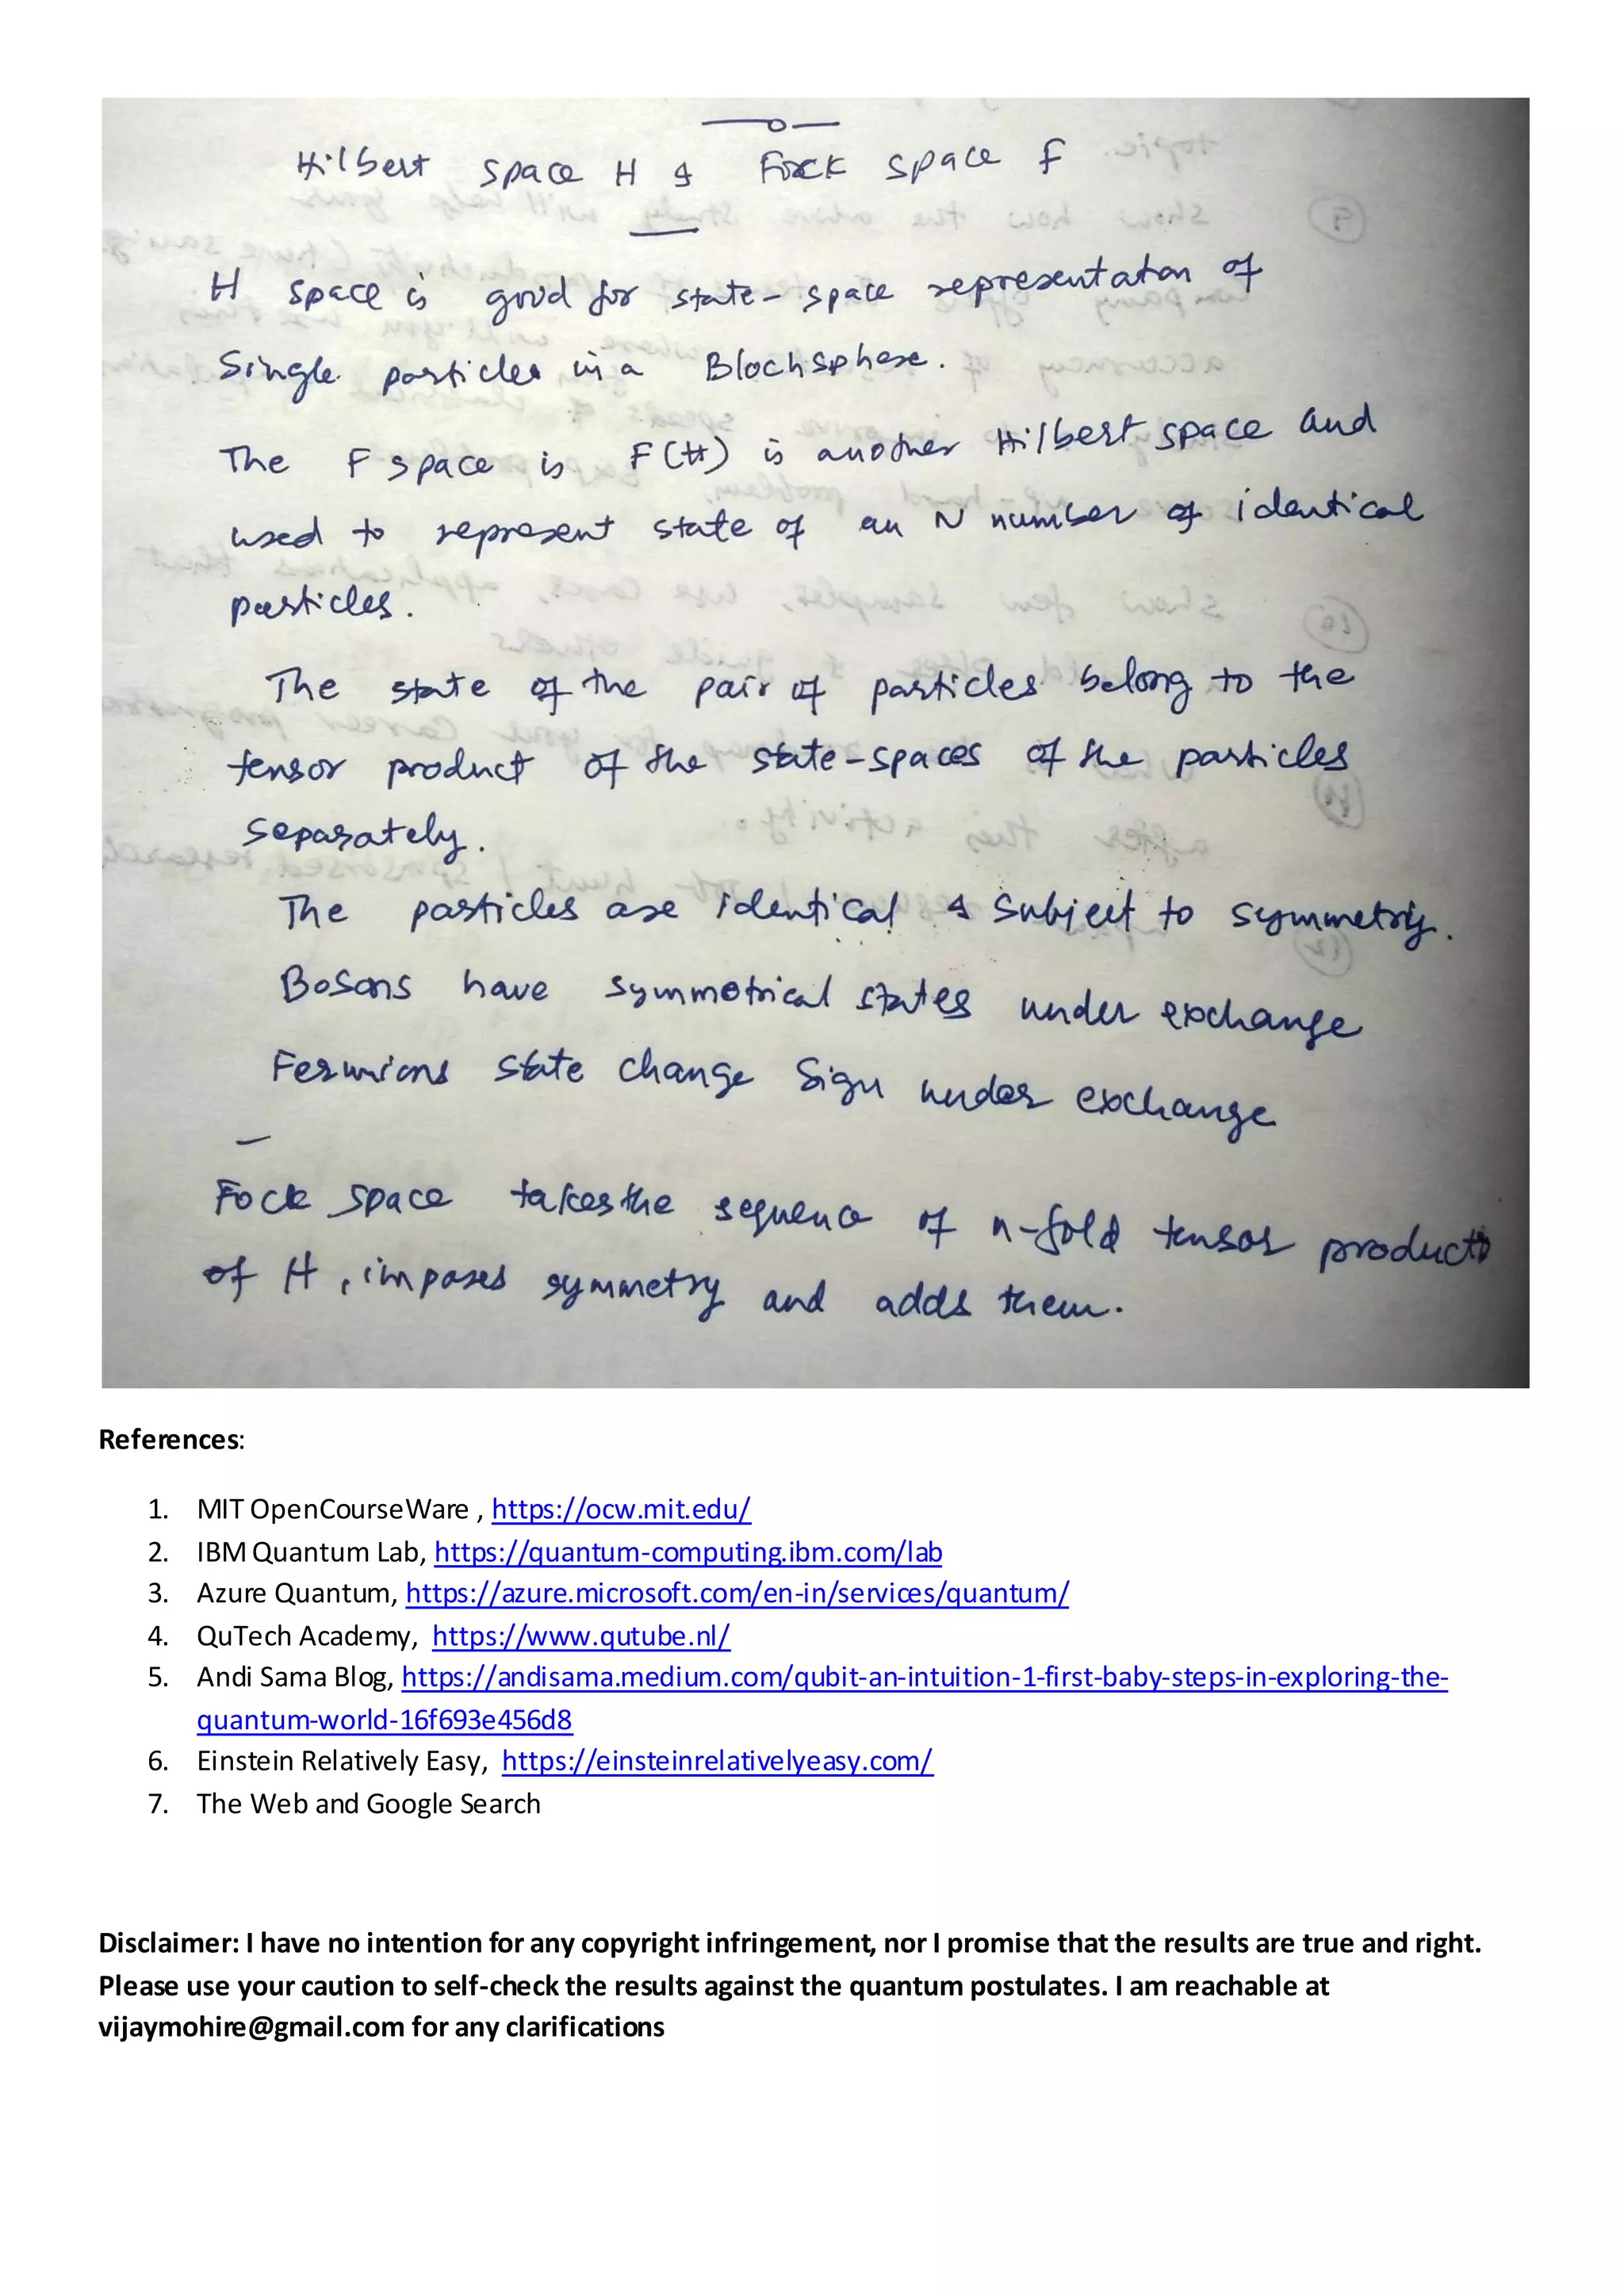 Hilbert space H & Fock space F
H space is good for state-space representation of
Single particles in a Bloch sphere.
The F space is F(H) is another Hilbert space and
used to represent state of an N number of identical
particles.
The state of the pair of particles belong to the
tensor product of the state-spaces of the particles
separately.
The particles are identical & subject to symmetry.
Bosons have symmetrical states under exchange
Fermions state change sign under exchange
Fock space takes the sequence of n-fold tensor products
of H, imposes symmetry and adds them.
References:
1. MIT OpenCourseWare , https://ocw.mit.edu/
2. IBM Quantum Lab, https://quantum-computing.ibm.com/lab
3. Azure Quantum, https://azure.microsoft.com/en-in/services/quantum/
4. QuTech Academy, https://www.qutube.nl/
5. Andi Sama Blog, https://andisama.medium.com/qubit-an-intuition-1-first-baby-steps-in-exploring-the-
quantum-world-16f693e456d8
6. Einstein Relatively Easy, https://einsteinrelativelyeasy.com/
7. The Web and Google Search
Disclaimer: I have no intention for any copyright infringement, nor I promise that the results are true and right.
Please use your caution to self-check the results against the quantum postulates. I am reachable at
vijaymohire@gmail.com for any clarifications